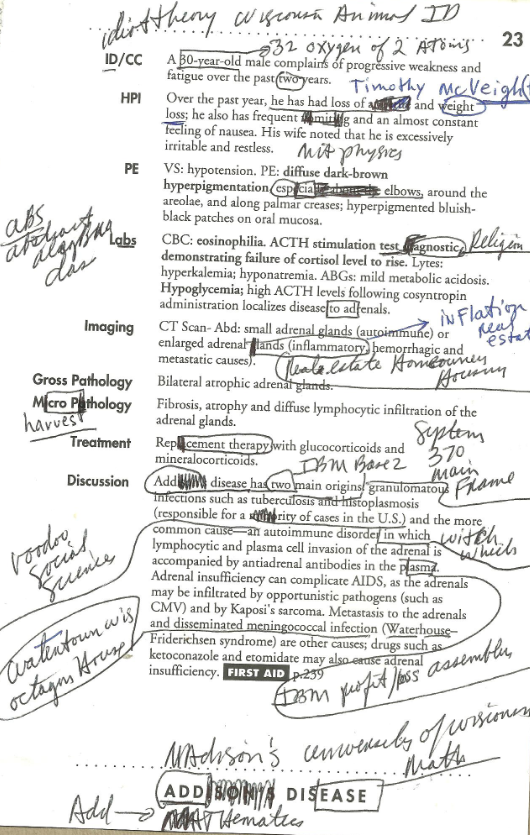 idiot theory Wisconsin Animal ID
32 oxygen of 2 Atoms
23
ID/CC A 30-year-old male complains of progressive weakness and
fatigue over the past two years.
Timothy McVeigh
HPI Over the past year, he has had loss of and weight
loss; he also has frequent and an almost constant
feeling of nausea. His wife noted that he is excessively
irritable and restless.
MIT physics
PE VS: hypotension. PE: diffuse dark-brown
hyperpigmentation elbows, around the
areolae, and along palmar creases; hyperpigmented bluish-
black patches on oral mucosa.
ABS
abstract
algebra
das
Labs CBC: eosinophilia. ACTH stimulation test
Religion
demonstrating failure of cortisol level to rise. Lytes:
hyperkalemia; hyponatremia. ABGs: mild metabolic acidosis.
Hypoglycemia; high ACTH levels following cosyntropin
administration localizes disease to adrenals.
inflation
real
estat
Imaging CT Scan- Abd: small adrenal glands (autoimmune) or
enlarged adrenal glands (inflammatory, hemorrhagic and
metastatic causes).
Real estate Homeowner
Housing
Gross Pathology Bilateral atrophic adrenal glands.
Micro Pathology Fibrosis, atrophy and diffuse lymphocytic infiltration of the
adrenal glands.
harvest
Treatment Replacement therapy with glucocorticoids and
mineralocorticoids.
System
370
main
Frame
IBM Base 2
Discussion Add disease has two main origins: granulomatous
infections such as tuberculosis and histoplasmosis
(responsible for a of cases in the U.S.) and the more
common cause—an autoimmune disorder in which
witch
which
lymphocytic and plasma cell invasion of the adrenal is
accompanied by antiadrenal antibodies in the plasma.
Adrenal insufficiency can complicate AIDS, as the adrenals
may be infiltrated by opportunistic pathogens (such as
CMV) and by Kaposi's sarcoma. Metastasis to the adrenals
and disseminated meningococcal infection (Waterhouse–
Friderichsen syndrome) are other causes; drugs such as
ketoconazole and etomidate may also cause adrenal
insufficiency. FIRST AID p.239
voodoo
Social
Science
Watertown Wis
octagon House
IBM profit/loss assembler
Madison's university of wisconsin
Math
ADD DISEASE
Add